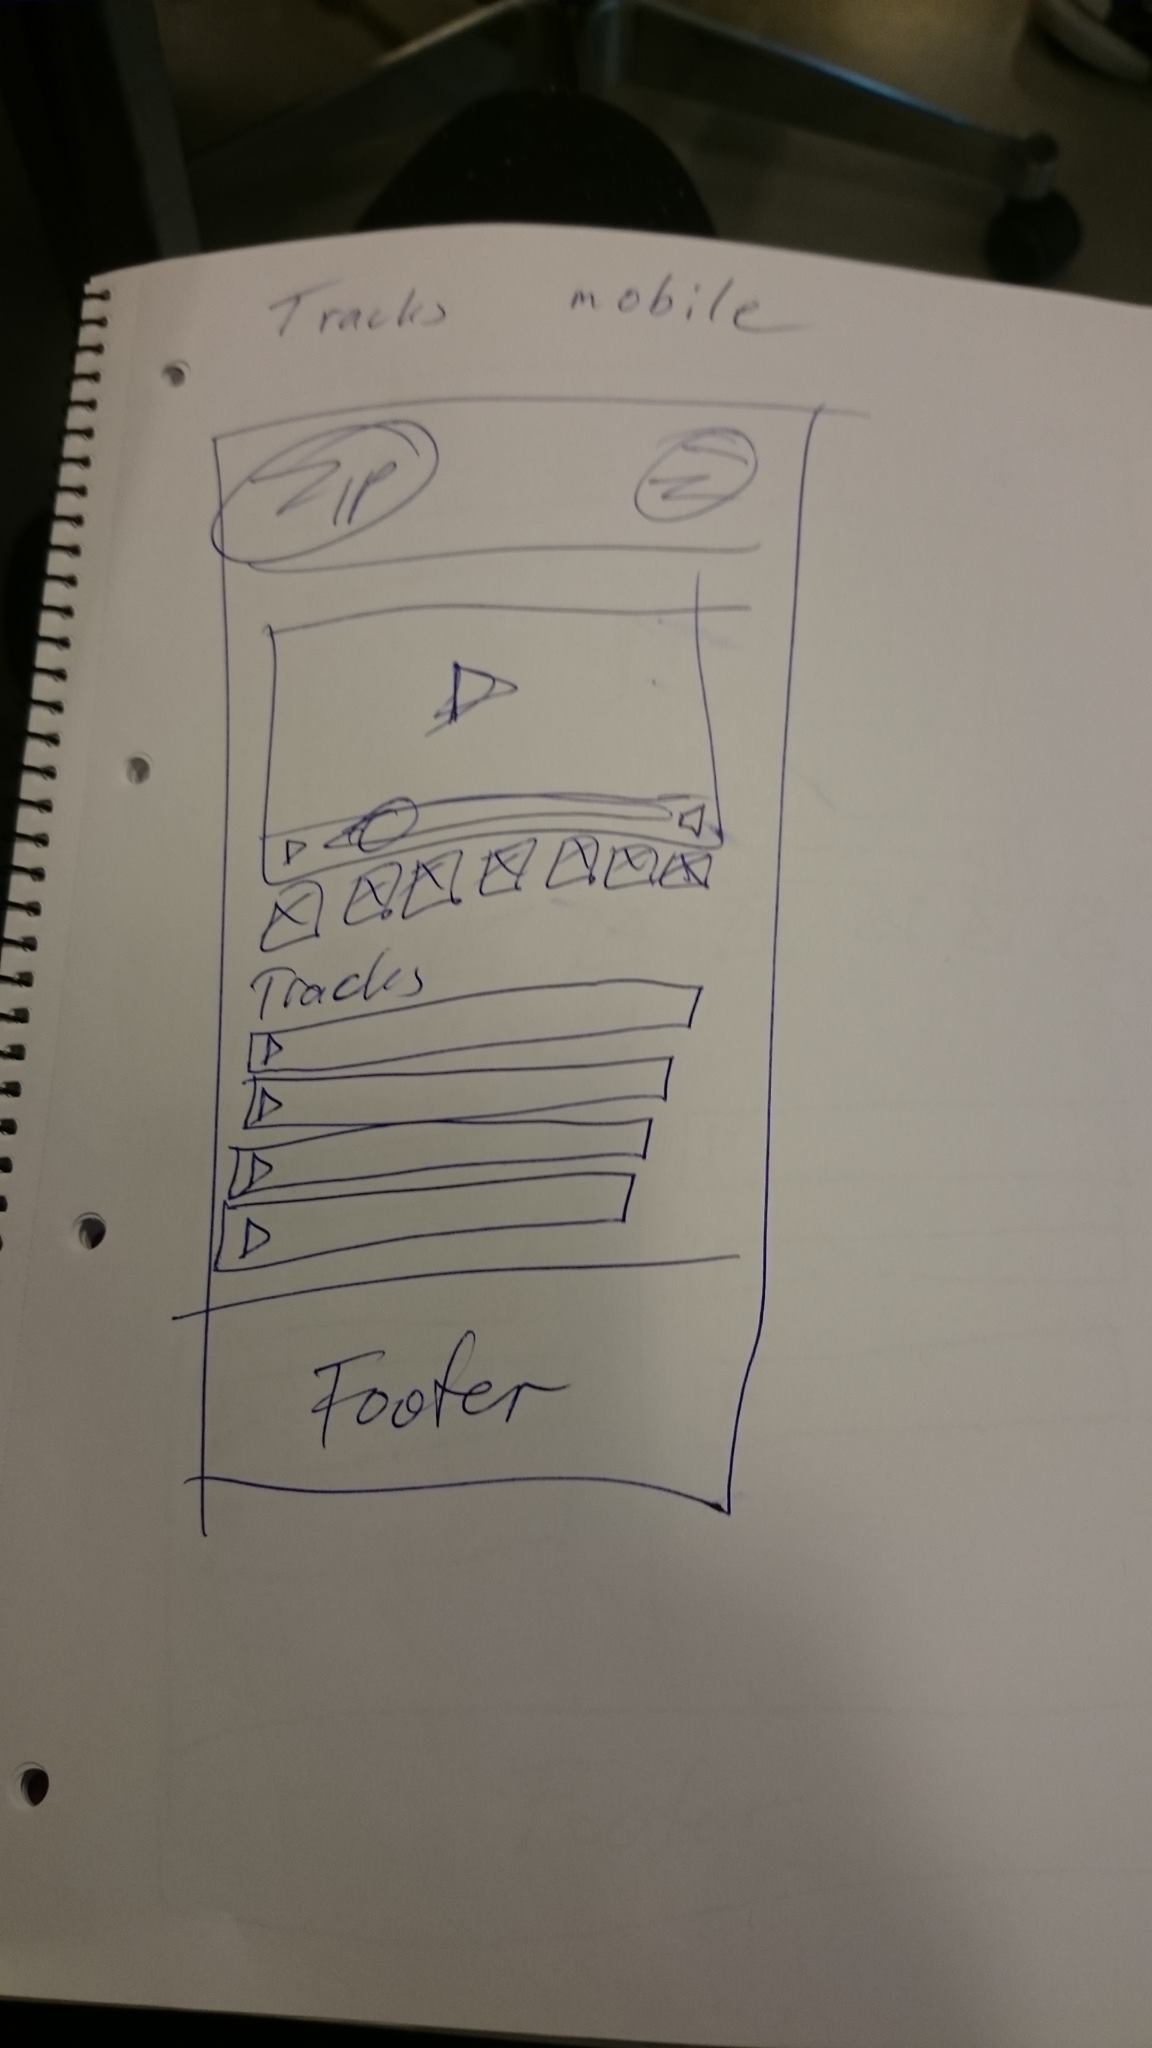 Tracks mobile
Tracks
Footer